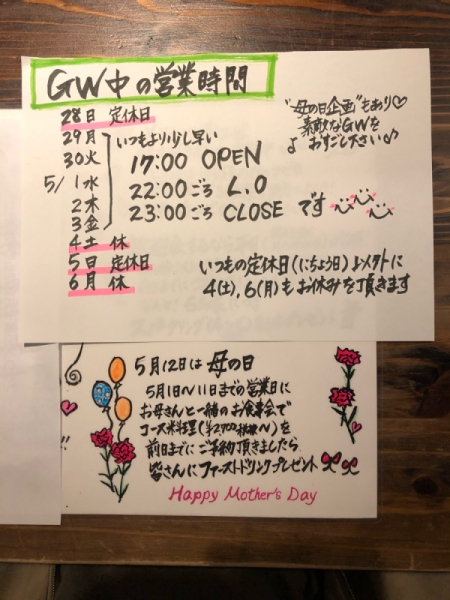 GW中の営業時間
28日 定休日
29月
30火
5/1水
2木
3金
4土 休
5日 定休日
6月 休
いつもより少し早い
17:00 OPEN
22:00ごろ L.O
23:00ごろ CLOSE です
"母の日企画"もあり♡
素敵なGWを
おすごし下さい♪
いつもの定休日(にちよう日)以外に
4(土)、6(月)もお休みを頂きます
5月12日は 母の日
5月1日〜11日までの営業日に
お母さんと一緒のお食事会で
コース料理(¥2,700税抜〜)を
前日までにご予約頂きましたら
皆さんにファーストドリンクプレゼント
Happy Mother's Day
!!